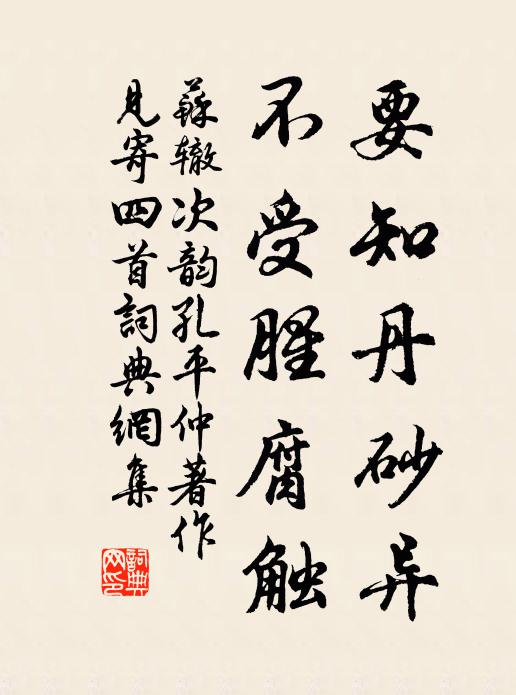 要知丹砂异
不受腥腐触
蘇辙次韵孔平仲著作
見寄四首詞典網集
詞典网印